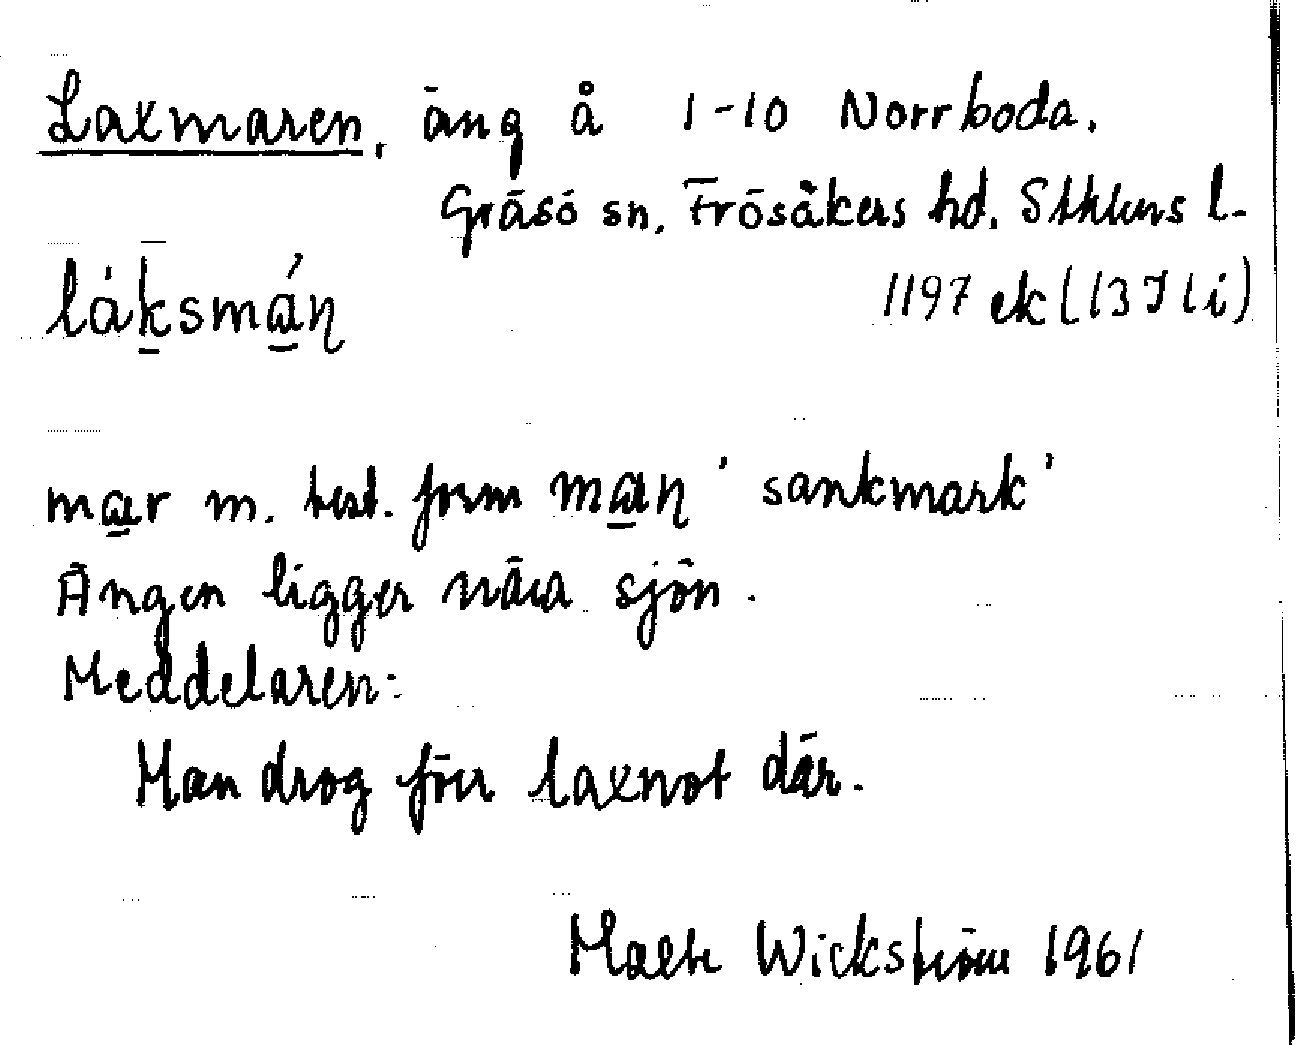 Laxmaren, äng å 1-10 Norrboda.
Gräsö sn. Frösåkers hd. Sthlms l.
láksmá̲ɳ
1197 ek (13I1i)
ma̲r m. best. form ma̲ɳ 'sankmark'
Ängen ligger nära sjön.
Meddelaren:
Man drog förr laxnot där.
Malte Wickström 1961